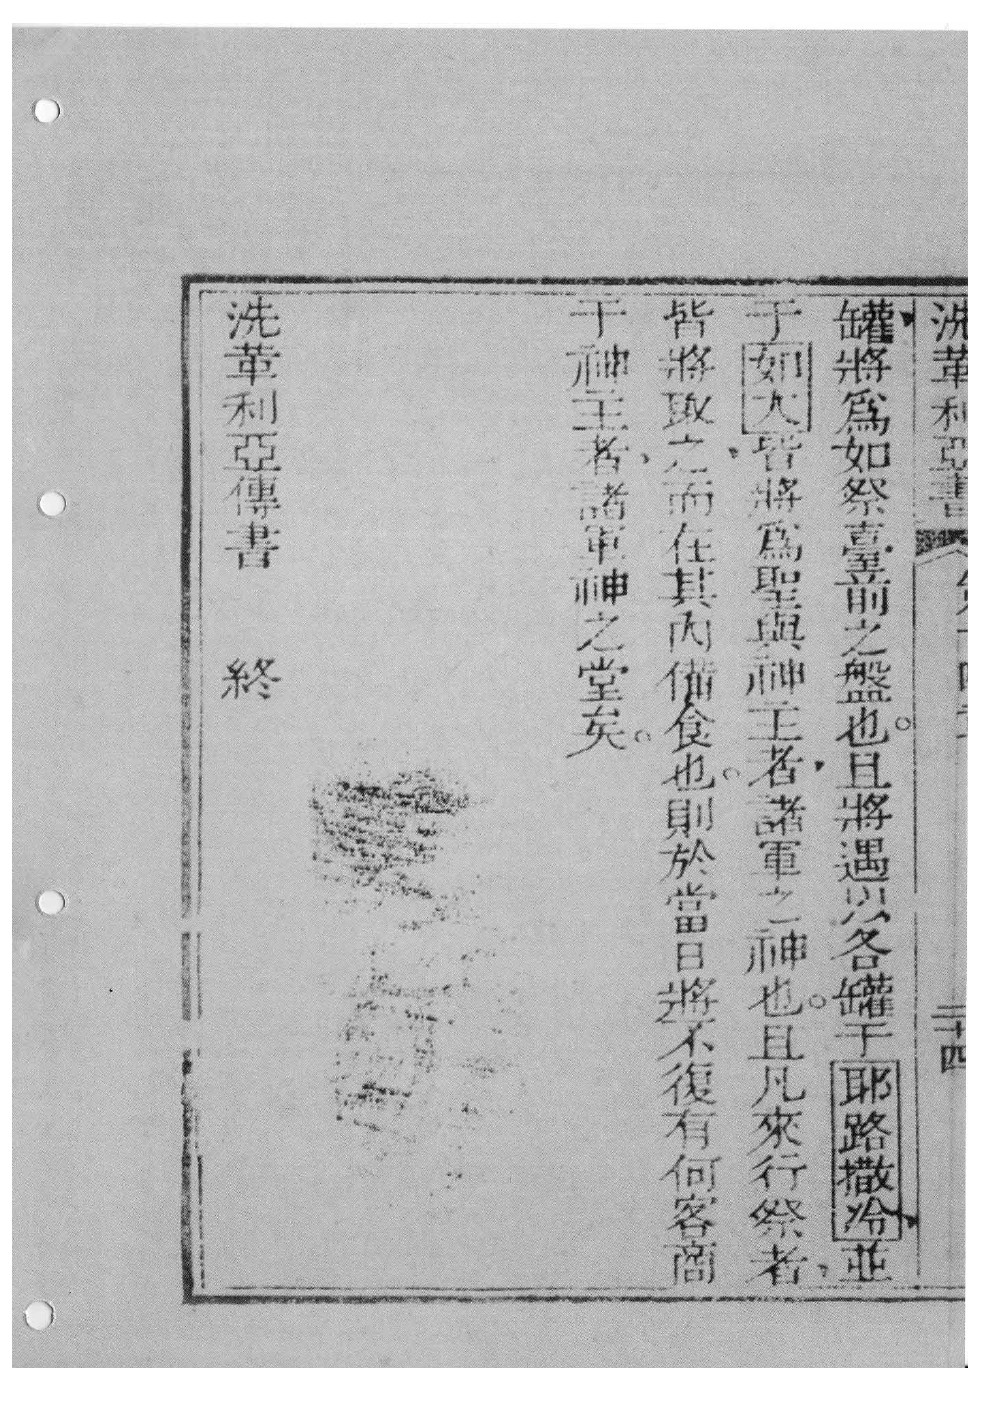 洗革利亞書 二十四
罐將爲如祭臺前之盤也。且將遇以各罐于耶路撒冷、並
于如大、皆將爲聖與神主者、諸軍之神也。且凡來行祭者、
皆將取之而在其內備食也。則於當日將不復有何客商
于神主者、諸軍神之堂矣。
洗革利亞傳書 終